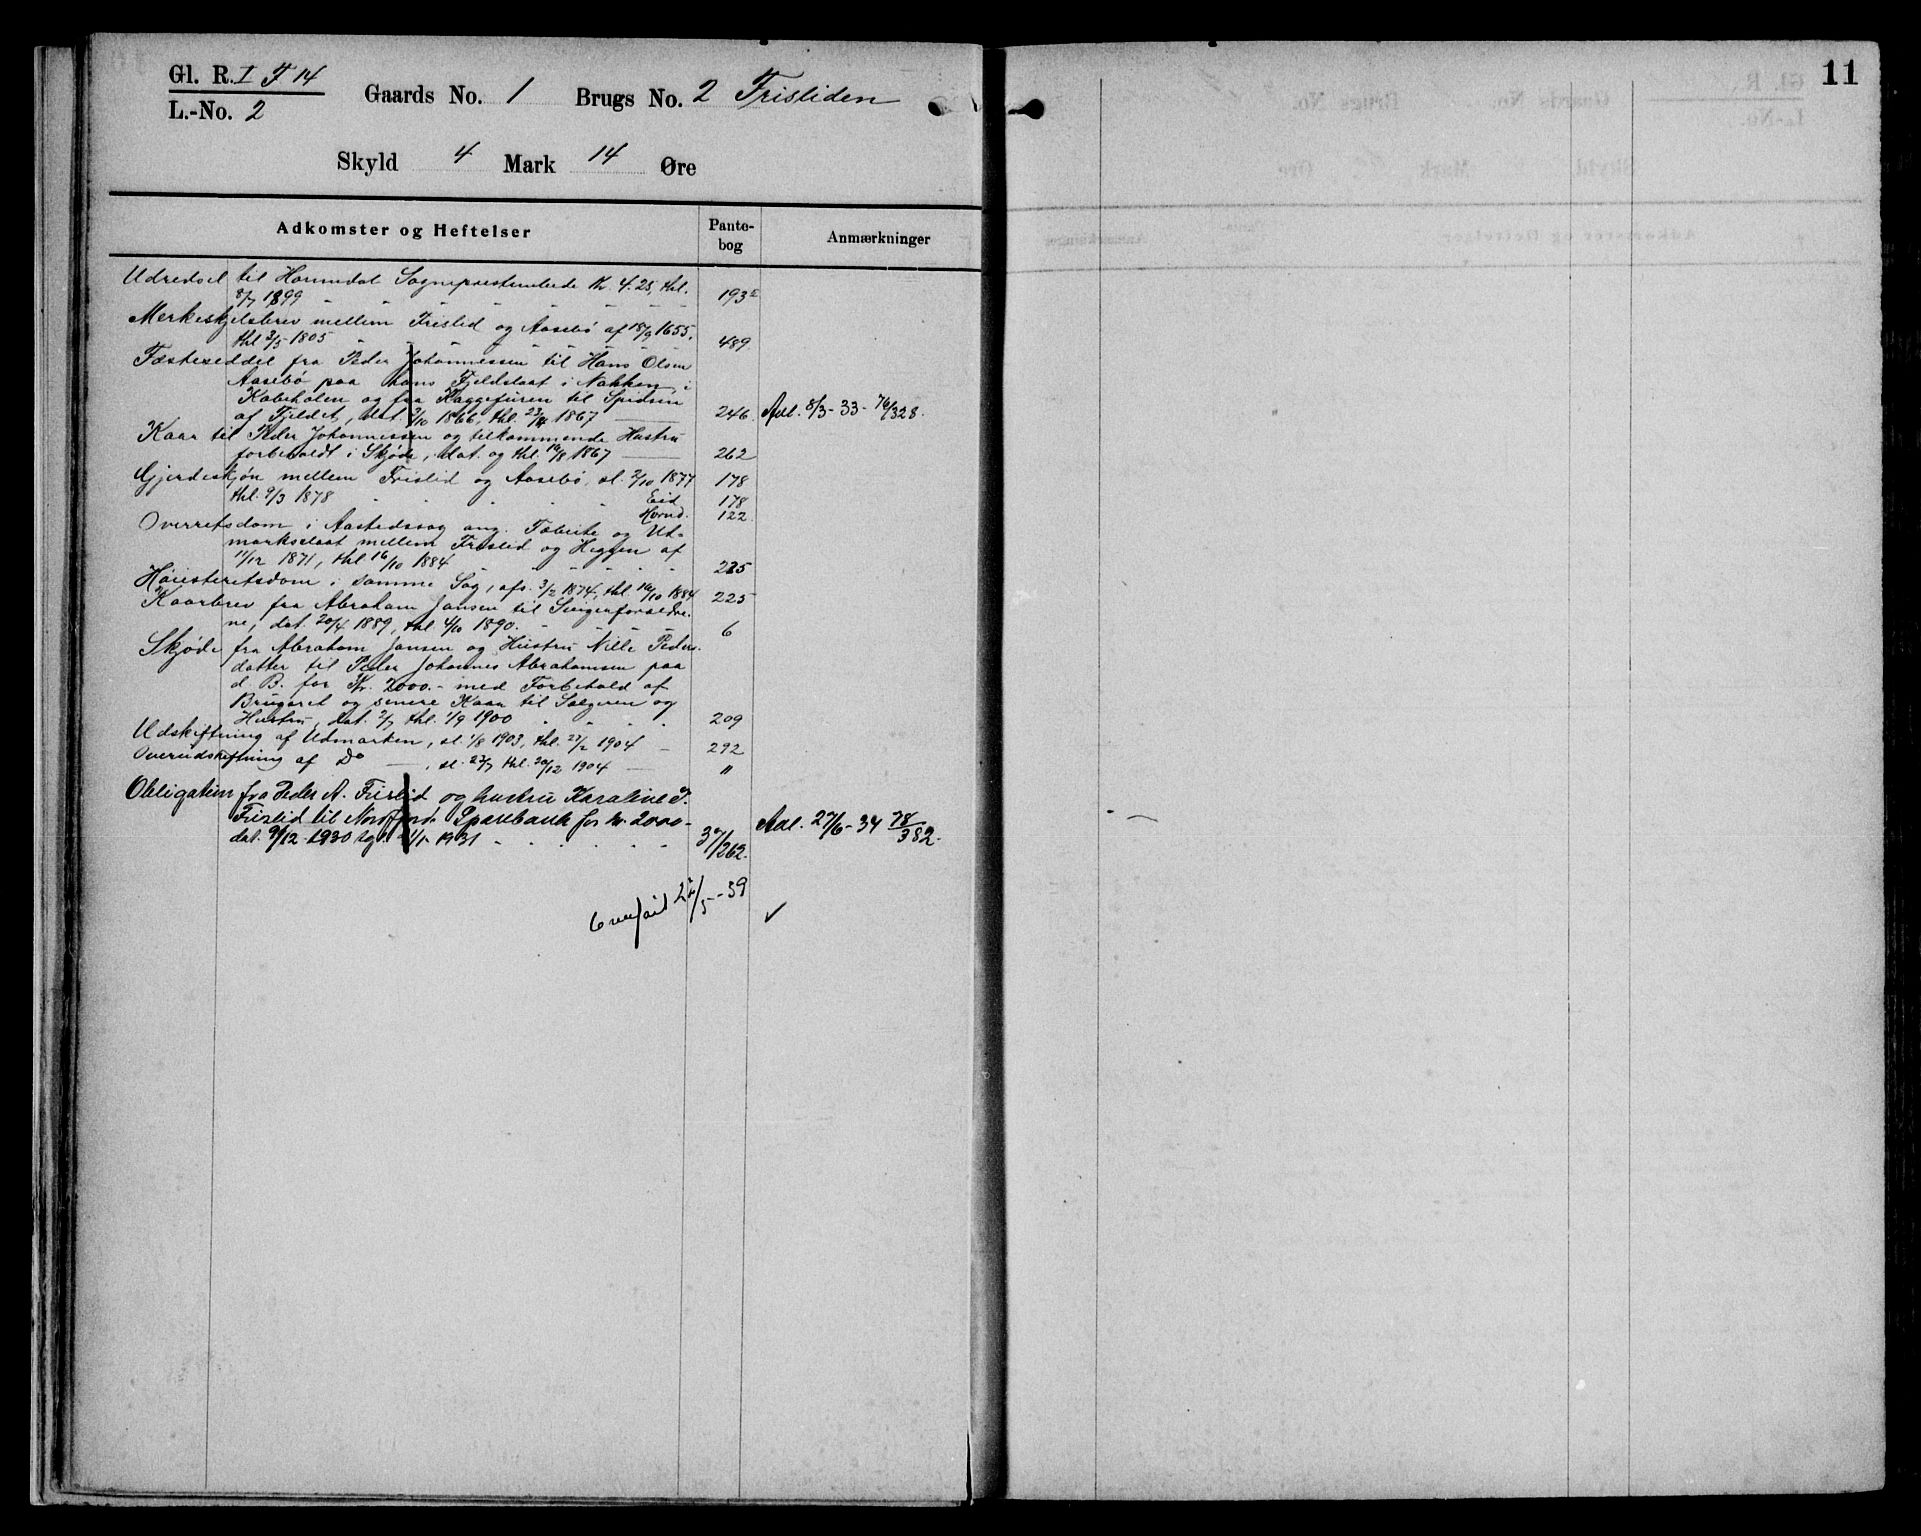 Gl. R. I F 14
L.-No. 2
Gaards No. 1 Brugs No. 2 Frisliden
Skyld 4 Mark 14 Øre
11
Adkomster og Heftelser Pante-bog Anmærkninger
Udredsel til Hornindal Sogneprestembede kr. 4.25, thl.
8/7 1899 - - - - - - 193
Merkeskjelsbrev mellem Frislid og Aasebø af 18/9 1655,
thl. 2/5 1805 - - - - - - 489
Fæsteseddel fra Peder Johannessen til Hans Olsen
Aasebø paa hans Fjeldslaat i Nakken, i
Kobeholen og fra Kaggefuren til Spidsen
af Fjeldet, dat. 2/10 1866, thl. 23/4 1867 246 Avl. 8/3-33- 76/328.
Kaar til Peder Johannessen og tilkommende Hustru
forbeholdt i Skjøde, dat. og thl. 19/8 1867 262
Gjerdeskjøn mellem Frislid og Aasebø, sl. 2/10 1877 178
thl. 9/3 1878 - - - - Eid 178
Hornd. 122
Overretsdom i Aastedssag ang. Fæbeite og Ud-
markslaat mellem Frislid og Heggen af
11/12 1871, thl. 16/10 1884 - - - - 225
Høiesteretsdom i samme Sag, afs. 3/2 1874, thl. 16/10 1884 225
Kaarbrev fra Abraham Jansen til Svigerforældre-
ne, dat. 20/4 1889, thl. 4/10 1890. - - - 6
Skjøde fra Abraham Jansen og Hustru Nille Peders-
datter til Peder Johannes Abrahamsen paa
d. B. for Kr. 2000.- med Forbehold af
Brugsret og senere Kaar til Sælgeren og
Hustru, dat. 2/7 thl. 1/9 1900 - - - - 209
Udskiftning af Udmarken, sl. 1/8 1903, thl. 23/2 1904 - 292
Overudskiftning af Do —, sl. 23/7 thl. 20/12 1904 — "
Obligation fra Peder A. Frislid og hustru Karaline P.
Frislid til Nordfjord Sparebank for kr. 2000-
dat. 9/12-1930 tgl. 2/1-1931 - - - - 37/262. Avl. 27/6-34 78/382.
Overført 22/5-39 ✓